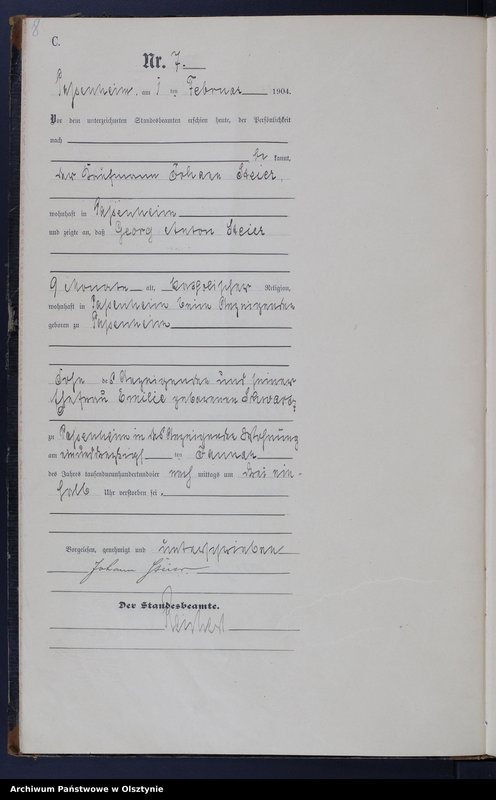 8
C.
Nr. 7.
Passenheim, am 1 ten Februar 1904.
Vor dem unterzeichneten Standesbeamten erschien heute, der Persönlichkeit
nach
be kannt,
der Kaufmann Johann Steier,
wohnhaft in Passenheim
und zeigte an, daß Georg Anton Steier
9 Monate alt, katholischer Religion,
wohnhaft in Passenheim beim Anzeigenden
geboren zu Passenheim
Sohn des Anzeigenden und seiner
Ehefrau Emilie geborenen Schwarz
zu Passenheim in des Anzeigenden Wohnung
am einunddreißigsten Januar
des Jahres tausendneunhundertundvier nach mittags um drei ein-
halb Uhr verstorben sei.
Vorgelesen, genehmigt und unterschrieben
Johann Steier
Der Standesbeamte.
Archiwum Państwowe w Olsztynie